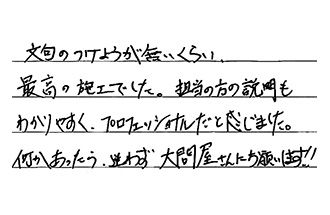 文句のつけようが無いくらい、
最高の施工でした。担当の方の説明も
わかりやすく、プロフェッショナルだと感じました。
何かあったら、迷わず大問屋さんにお願いします!!